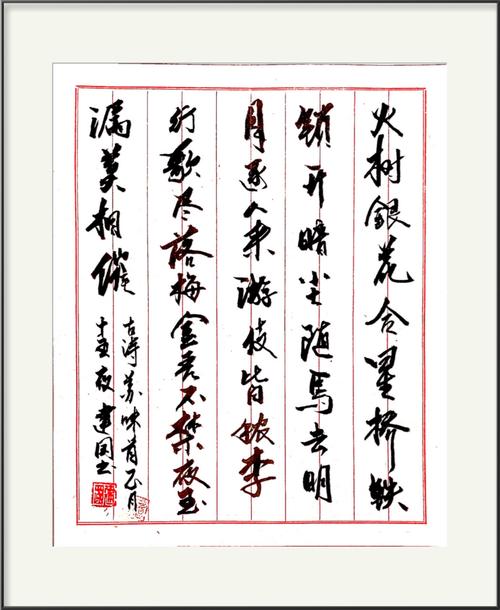 火树银花合星桥铁
锁开暗尘随马去明
月逐人来游伎皆秾李
行歌尽落梅金吾不禁夜玉
漏莫相催
古诗苏味道正月
十五夜建国书